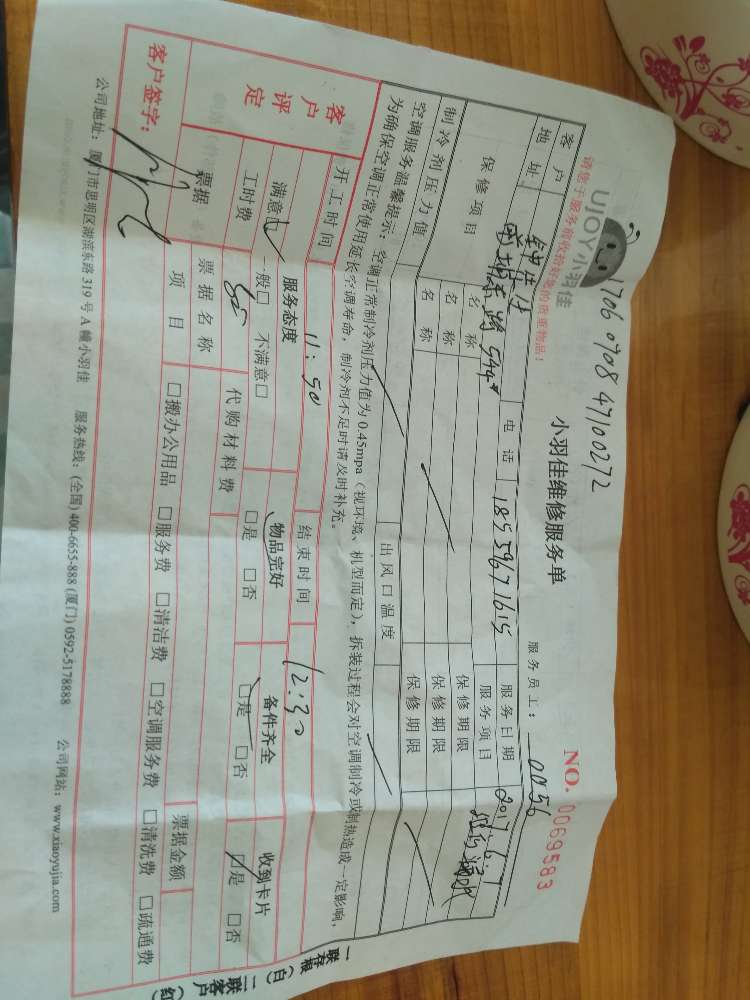 1706 0708 47100272
UJOY小羽佳
小羽佳维修服务单
NO. 0069583
请您于服务前收拾好您的贵重物品！
服务员工： 0056
客户
电话 18559671615
服务日期 2017.6.7
地址
服务项目
保修项目
名称
保修期限
名称
保修期限
名称
保修期限
制冷剂压力值
出风口温度
空调服务温馨提示：空调正常制冷剂压力值为 0.45mpa（视环境、机型而定），拆装过程会对空调制冷或制热造成一定影响，
为确保空调正常使用延长空调寿命，制冷剂不足时请及时补充。
开工时间 11:50
结束时间 12:30
客户评定
服务态度
物品完好
备件齐全
收到卡片
满意□ 一般□ 不满意□
□是 □否
□是 □否
□是 □否
工时费
代购材料费
票据
票据名称
票据金额
项目
□搬办公用品 □服务费 □清洁费 □空调服务费 □清洗费 □疏通费
客户签字：
公司地址：厦门市思明区湖滨东路 319 号 A 幢小羽佳 服务热线：(全国) 400-6655-888 (厦门) 0592-5178888 公司网站：www.xiaoyujia.com
一联存根（白） 二联客户（红）